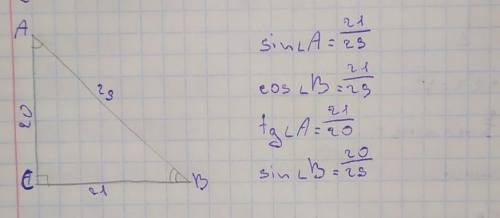 A
20
29
C
21
B
sin∠A = 21/29
cos∠B = 21/29
tg∠A = 21/20
sin∠B = 20/29